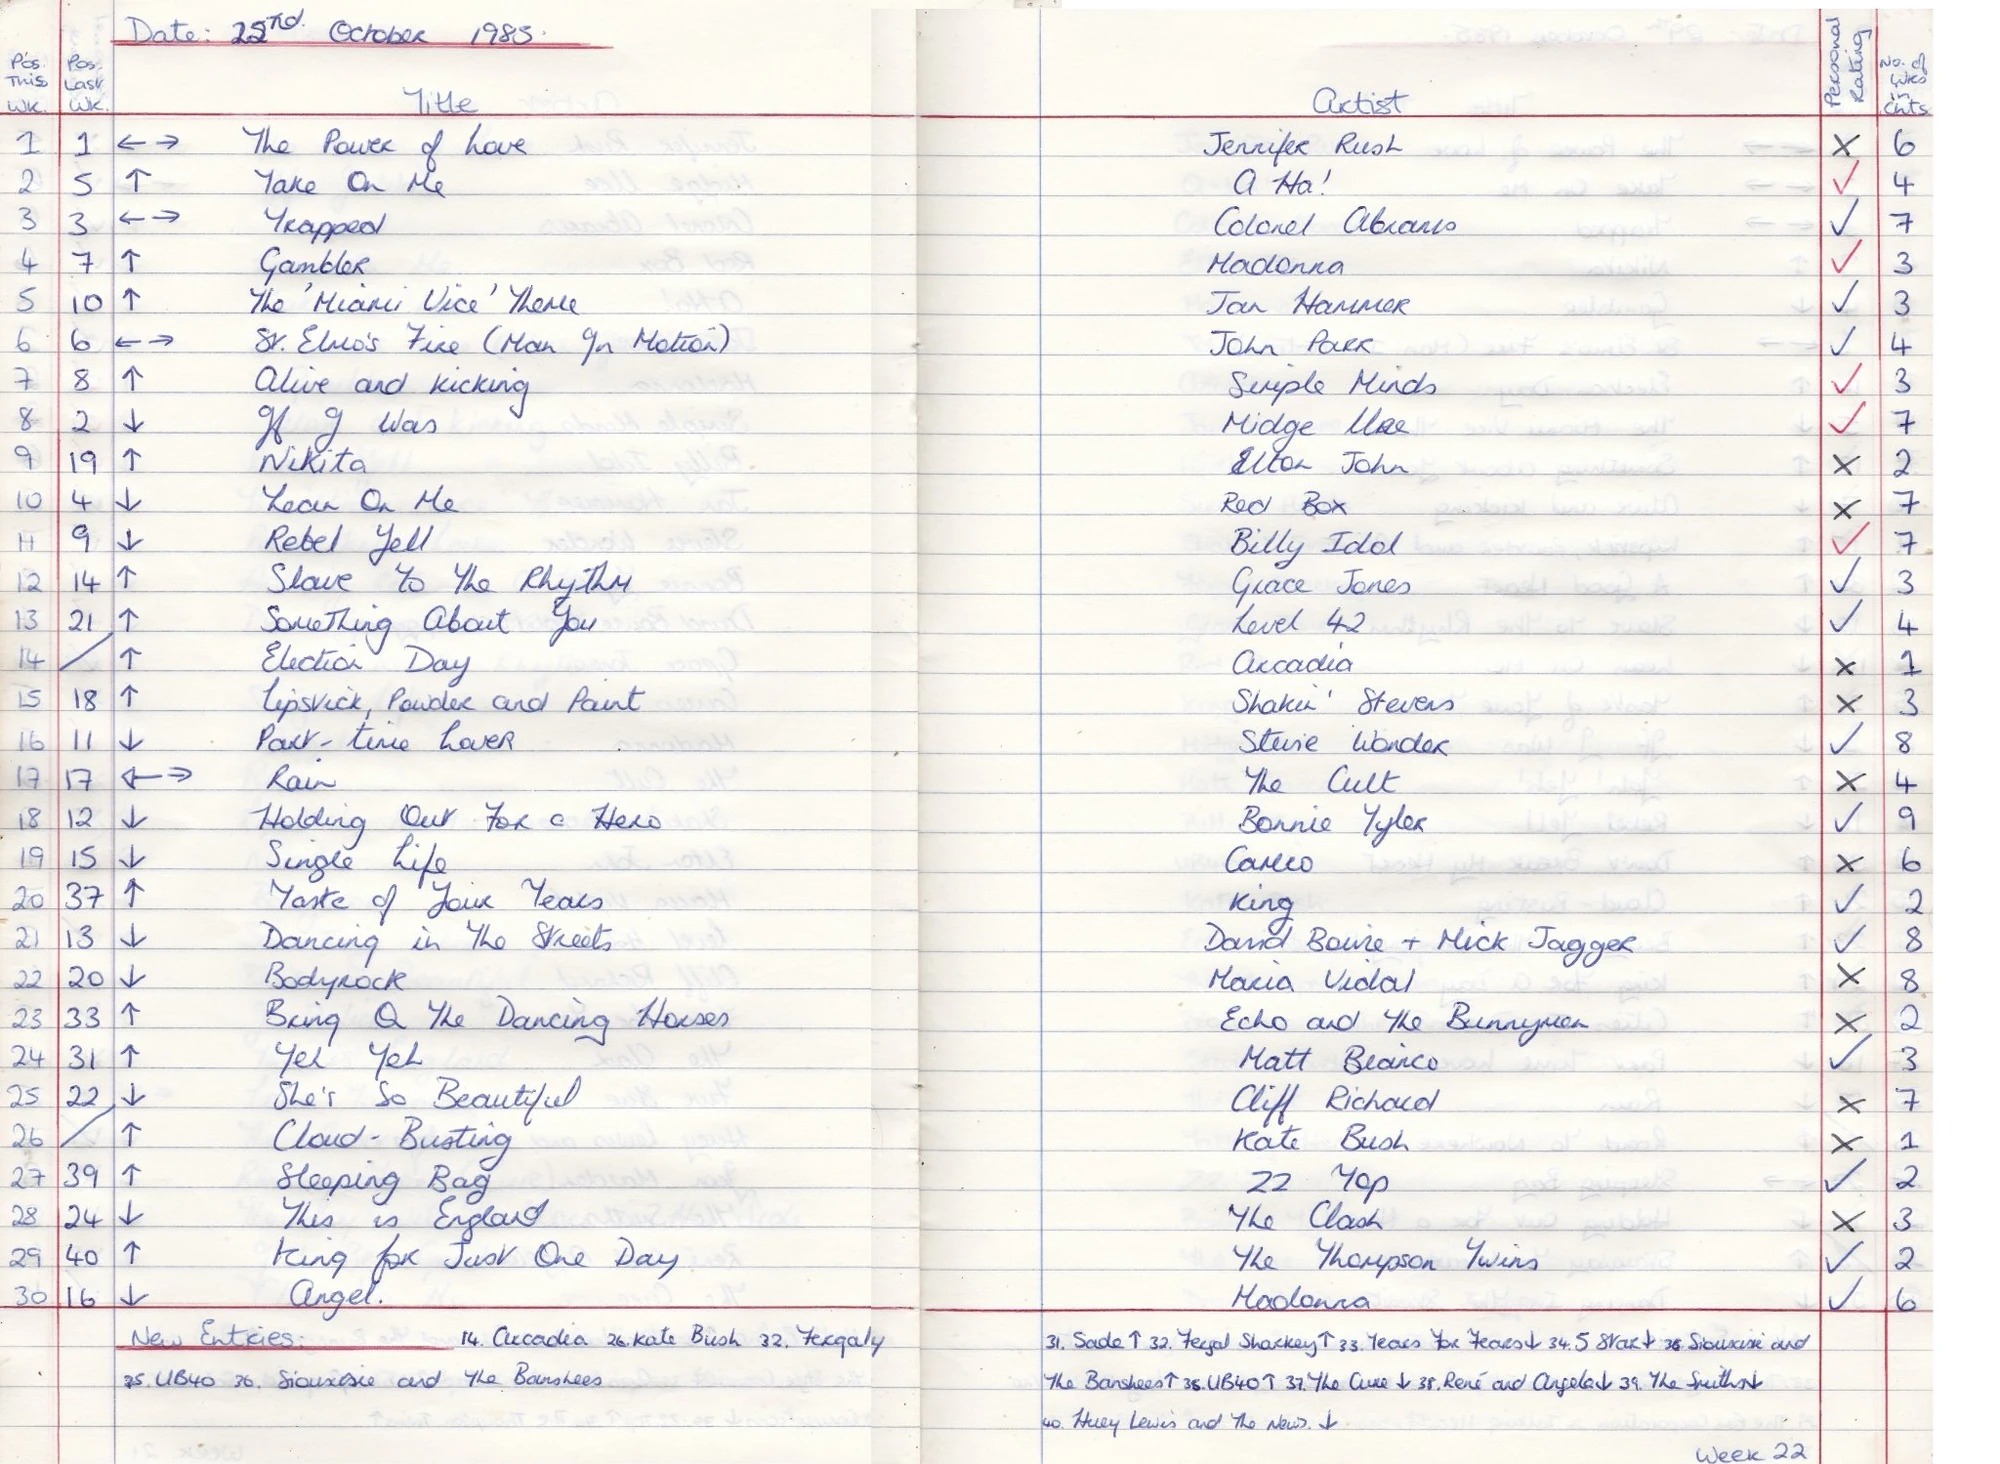 Date: 22nd October 1985.
Pos. This Wk. Pos. Last Wk. Title Artist Personal Rating No. of Wks in Chts
1 1 ←→ The Power of Love Jennifer Rush X 6
2 5 ↑ Take On Me A Ha! ✓ 4
3 3 ←→ Trapped Colonel Abrams ✓ 7
4 7 ↑ Gambler Madonna ✓ 3
5 10 ↑ The 'Miami Vice' Theme Jan Hammer ✓ 3
6 6 ←→ St. Elmo's Fire (Man In Motion) John Parr ✓ 4
7 8 ↑ Alive and Kicking Simple Minds ✓ 3
8 2 ↓ If I Was Midge Ure ✓ 7
9 19 ↑ Nikita Elton John X 2
10 4 ↓ Lean On Me Red Box X 7
11 9 ↓ Rebel Yell Billy Idol ✓ 7
12 14 ↑ Slave To The Rhythm Grace Jones ✓ 3
13 21 ↑ Something About You Level 42 ✓ 4
14 / ↑ Election Day Arcadia X 1
15 18 ↑ Lipstick, Powder and Paint Shakin' Stevens X 3
16 11 ↓ Part-time Lover Stevie Wonder ✓ 8
17 17 ←→ Rain The Cult X 4
18 12 ↓ Holding Out For a Hero Bonnie Tyler ✓ 9
19 15 ↓ Single Life Cameo X 6
20 37 ↑ Taste of Your Tears King ✓ 2
21 13 ↓ Dancing in The Streets David Bowie + Mick Jagger ✓ 8
22 20 ↓ Bodyrock Maria Vidal X 8
23 33 ↑ Bring On The Dancing Horses Echo and The Bunnymen X 2
24 31 ↑ Yeh Yeh Matt Bianco ✓ 3
25 22 ↓ She's So Beautiful Cliff Richard X 7
26 / ↑ Cloud-Busting Kate Bush X 1
27 39 ↑ Sleeping Bag ZZ Top ✓ 2
28 24 ↓ This is England The Clash X 3
29 40 ↑ King for Just One Day The Thompson Twins ✓ 2
30 16 ↓ Angel. Madonna ✓ 6
New Entries: 14. Arcadia 26. Kate Bush 32. Fergaly
35. UB40 36. Siouxsie and The Banshees
31. Sade ↑ 32. Fergal Sharkey ↑ 33. Tears For Fears ↓ 34. 5 Star ↓ 36 Siouxsie and
The Banshees ↑ 35. UB40 ↑ 37. The Cure ↓ 38. René and Angela ↓ 39. The Smiths ↓
40. Huey Lewis and The News. ↓
Week 22